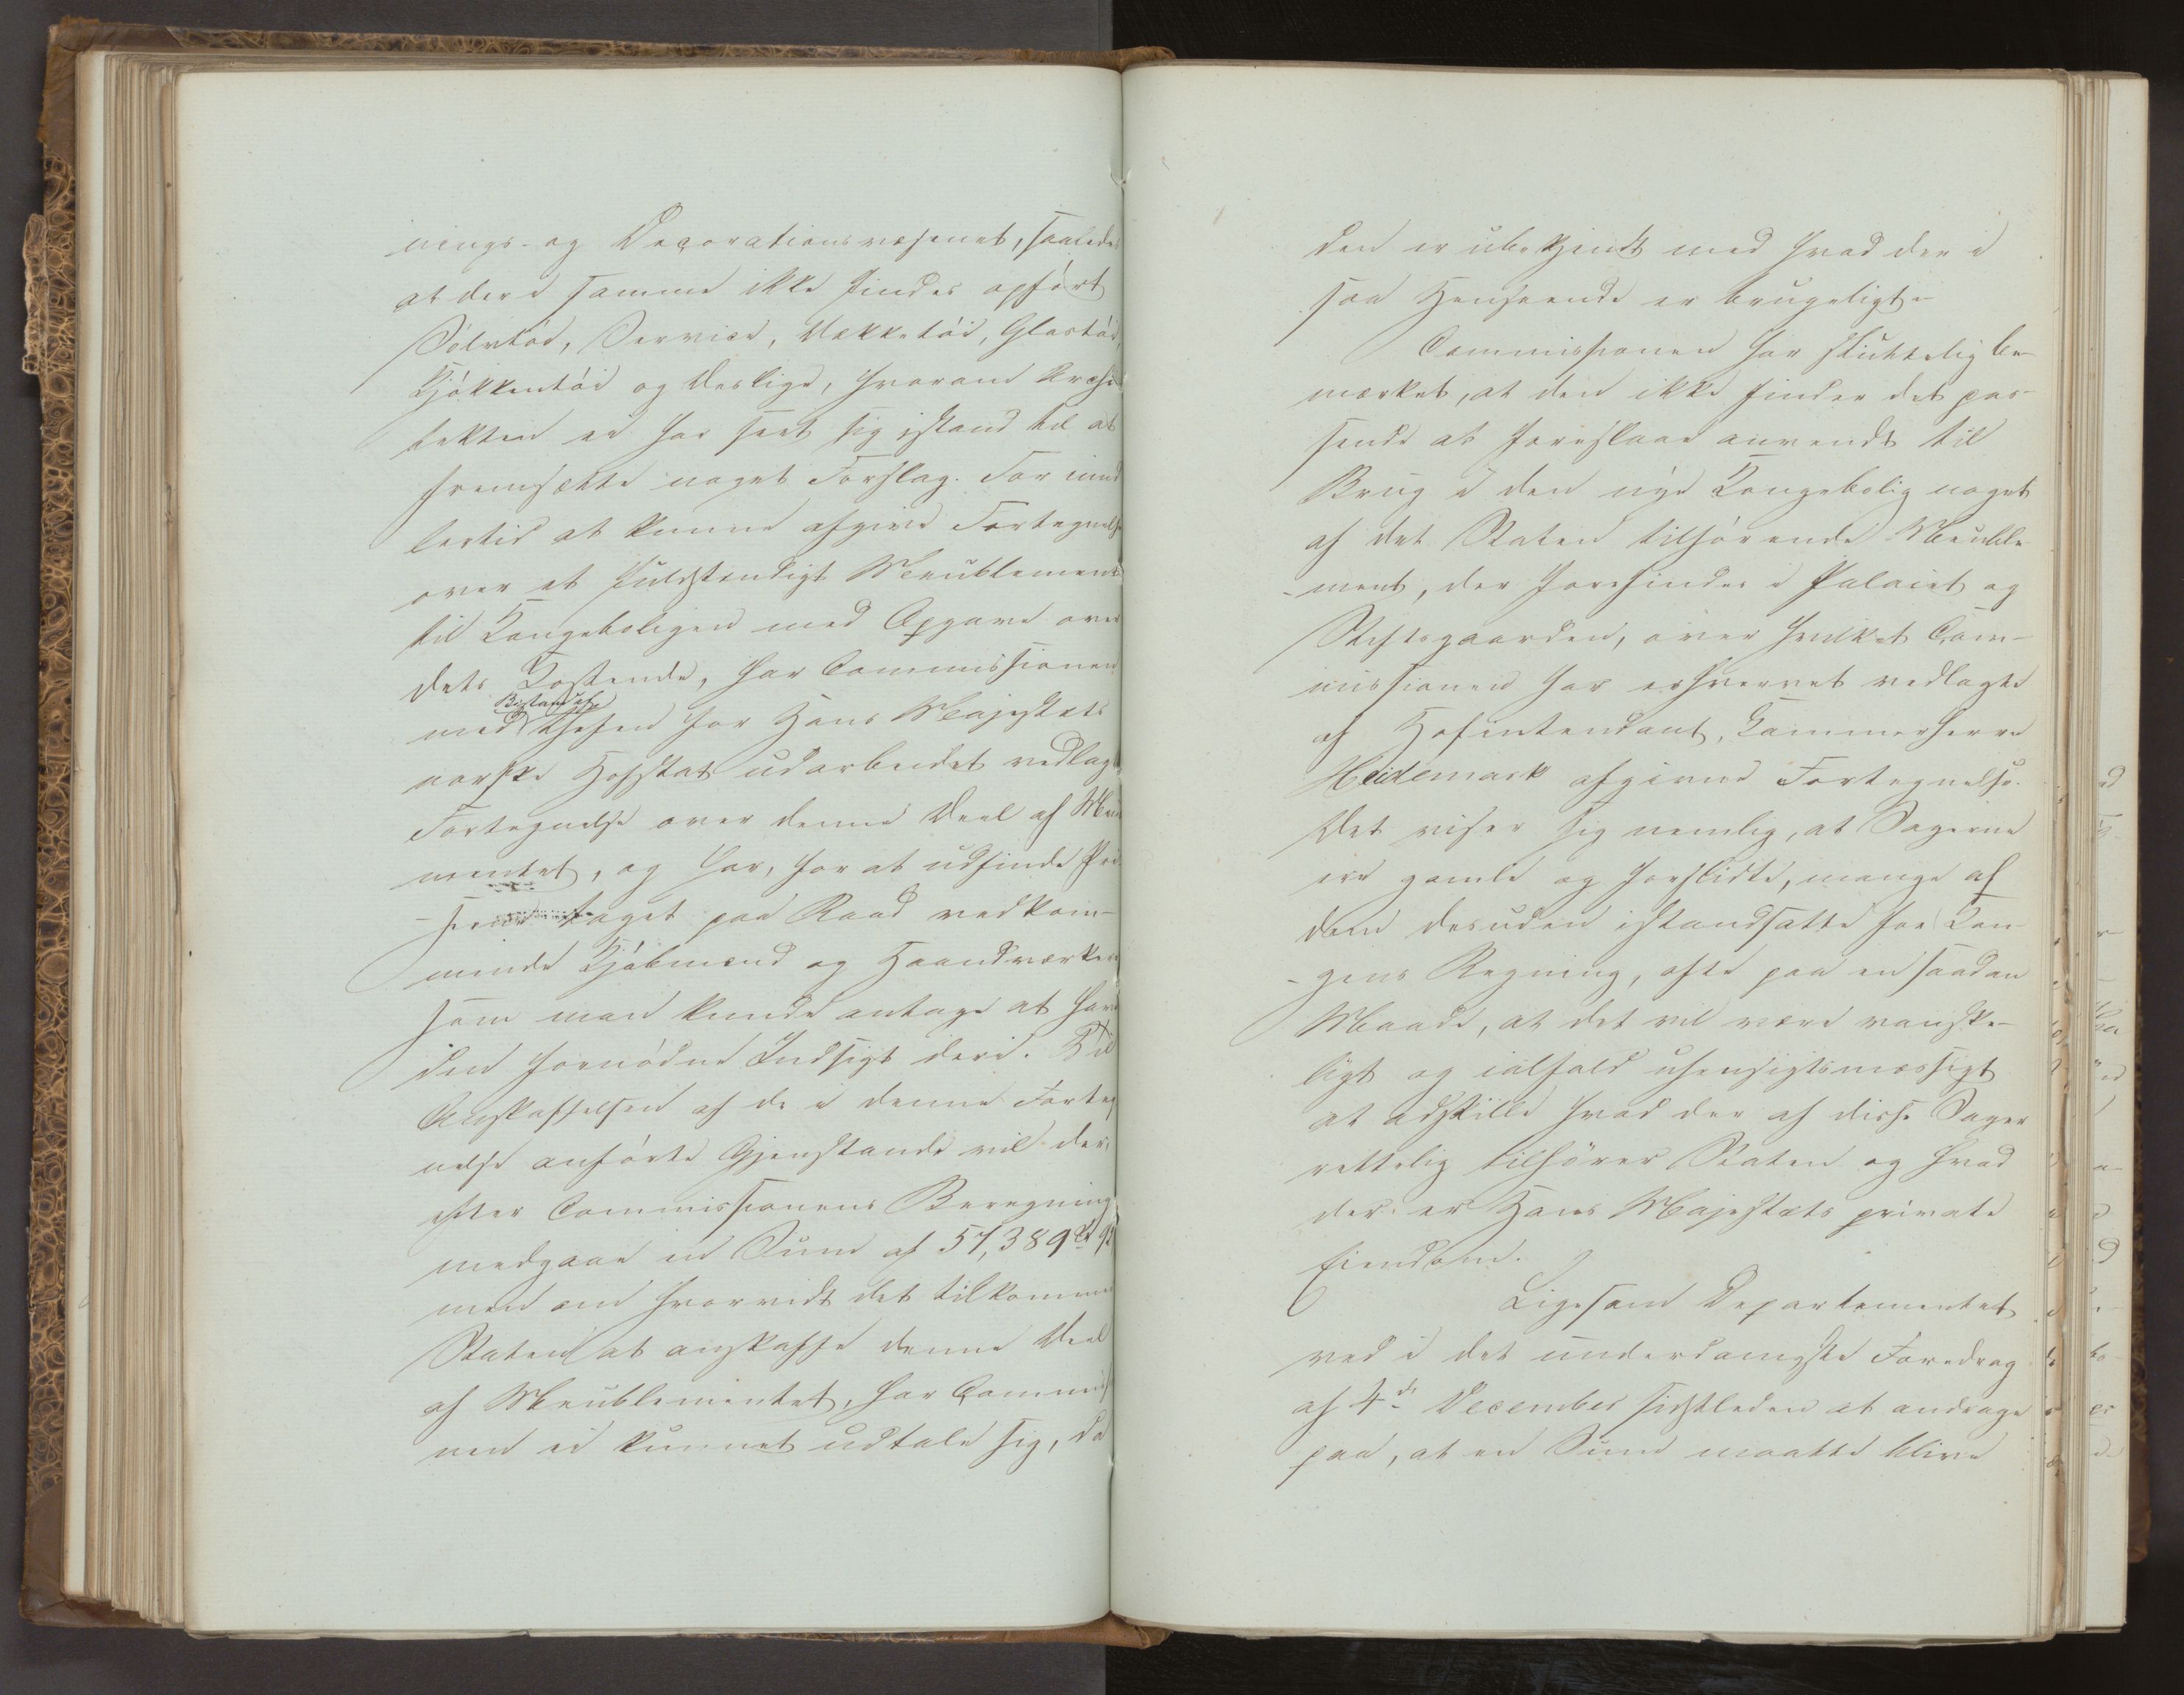 nings- og Decorationsvæsenet, saaledes
at der i samme ikke findes opført
Sølvtøi, Service, Dækketøi, Glastøi,
Kjøkkentøi og Deslige, hvorom Archi-
tekten ei har seet sig istand til at
fremsætte noget Forslag. For imid
lertid at kunne afgive Fortegnelse
over et fuldstændigt Meublement
til Kongeboligen med Opgave over
dets Kostende, har Commissionen
med Bistand af Chefen for Hans Majestæts
norske Hofstat udarbeidet vedlagte
Fortegnelse over denne Deel af Meuble
mentet, og har, for at udfinde Pri-
serne taget paa Raad vedkom-
mende Kjøbmænd og Haandværkere
som man kunde antage at have
den fornødne Indsigt deri. Til
Anskaffelsen af de i denne Forteg
nelse anførte Gjenstande vil der
efter Commissionens Beregning
medgaae en Sum af 57,389
men om hvorvidt det tilkommer
Staten at anskaffe denne Deel
af Meublementet, har Commissio
nen ei kunnet udtale sig, da
den er ubekjendt med hvad der i
saa Henseende er brugeligt.
Commissionen har sluttelig be-
mærket, at den ikke finder det pas-
sende at foreslaae anvendt til
Brug i den nye Kongebolig noget
af det Staten tilhørende Meuble-
-ment, der forefindes i Palaiet og
Stiftsgaarden, over hvilket Com-
missionen har erhvervet vedlagte
af Hofintendant, Kammerherre
Heidemark afgivne Fortegnelse.
Det viser sig nemlig, at Sagerne
ere gamle og forslidte, mange af
dem desuden istandsatte for Kon-
-gens Regning, ofte paa en saadan
Maade, at det vil være vanske-
ligt og ialfald uhensigtsmæssigt
at adskille hvad der af disse Sager
rettelig tilhører Staten og hvad
der er Hans Majestæts private
Eiendom.
Ligesom Departementet
ved i det underdanigste Foredrag
af 4de December sidstleden at andrage
paa, at en Sum maatte blive